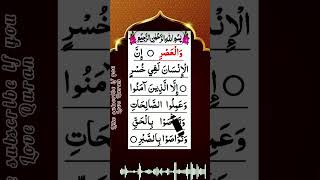 بِسْمِ اللهِ الرَّحْمٰنِ الرَّحِيْمِ
وَالْعَصْرِ ○ إِنَّ
الْإِنْسَانَ لَفِي خُسْرٍ
○ إِلَّا الَّذِينَ آمَنُوا
وَعَمِلُوا الصَّالِحَاتِ
وَتَوَاصَوْا بِالْحَقِّ
وَتَوَاصَوْا بِالصَّبْرِ ○
like subscribe if you
Love Quran